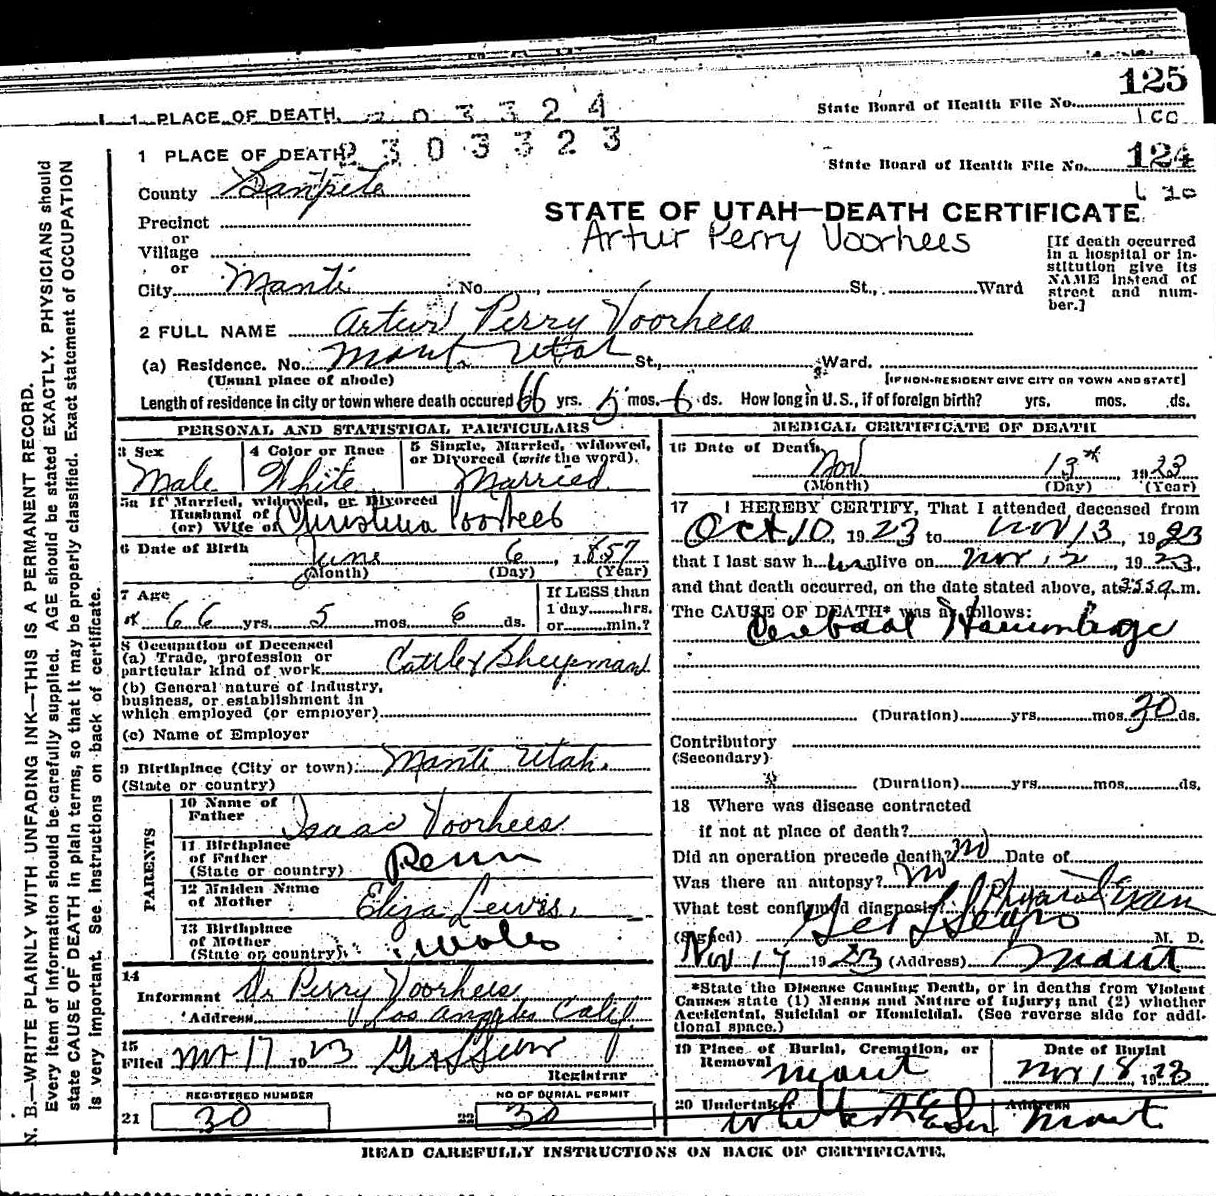 125
1 PLACE OF DEATH 2 0 3 3 2 4
State Board of Health File No.
2 3 0 3 3 2 3
1 PLACE OF DEATH
State Board of Health File No. 124
County Sanpete
STATE OF UTAH—DEATH CERTIFICATE
Precinct
or
Village
or
Artur Perry Voorhees
[If death occurred in a hospital or institution give its NAME instead of street and number.]
City Manti No. St., Ward
2 FULL NAME Artur Perry Voorhees
(a) Residence. No. Manti Utah St., Ward.
(Usual place of abode) [IF NON-RESIDENT GIVE CITY OR TOWN AND STATE]
Length of residence in city or town where death occured 66 yrs. 5 mos. 6 ds. How long in U. S., if of foreign birth? yrs. mos. ds.
PERSONAL AND STATISTICAL PARTICULARS
3 Sex Male
4 Color or Race White
5 Single, Married, widowed, or Divorced (write the word). Married
5a If Married, widowed, or Divorced
Husband of
(or) Wife of Christina Voorhees
6 Date of Birth June 6, 1857
(Month) (Day) (Year)
7 Age 66 yrs. 5 mos. 6 ds.
If LESS than
1 day hrs.
or min.?
8 Occupation of Deceased
(a) Trade, profession or
particular kind of work Cattle & Sheepman
(b) General nature of industry,
business, or establishment in
which employed (or employer)
(c) Name of Employer
9 Birthplace (City or town) Manti Utah.
(State or country)
PARENTS
10 Name of
Father Isaac Voorhees
11 Birthplace
of Father
(State or country) Penn
12 Maiden Name
of Mother Eliza Lewis.
13 Birthplace
of Mother
(State or country) Wales
14
Informant Dr Perry Voorhees
Address Los Angeles Calif.
15
Filed Nov 17 1923 Geo L Sears
Registrar
REGISTERED NUMBER
21 30
NO OF BURIAL PERMIT
22 30
MEDICAL CERTIFICATE OF DEATH
16 Date of Death Nov 13th 1923
(Month) (Day) (Year)
17 I HEREBY CERTIFY, That I attended deceased from
Oct 10, 1923 to Nov 13, 1923
that I last saw h im alive on Nov 12, 1923,
and that death occurred, on the date stated above, at m.
The CAUSE OF DEATH* was as follows:
Cerebral Hemorrhage
(Duration) yrs. mos. 30 ds.
Contributory
(Secondary)
(Duration) yrs. mos. ds.
18 Where was disease contracted
if not at place of death?
Did an operation precede death? no Date of
Was there an autopsy? no
What test confirmed diagnosis? Physical Exam
(Signed) Geo L Sears M. D.
Nov 17 1923 (Address) Manti
*State the Disease Causing Death, or in deaths from Violent
Causes state (1) Means and Nature of Injury; and (2) whether
Accidental, Suicidal or Homicidal. (See reverse side for addi-
tional space.)
19 Place of Burial, Cremation, or
Removal Manti
Date of Burial
Nov 18, 1923
20 Undertaker
Address Manti
READ CAREFULLY INSTRUCTIONS ON BACK OF CERTIFICATE.
N. B.—WRITE PLAINLY WITH UNFADING INK—THIS IS A PERMANENT RECORD.
Every item of information should be carefully supplied. AGE should be stated EXACTLY. PHYSICIANS should
state CAUSE OF DEATH in plain terms, so that it may be properly classified. Exact statement of OCCUPATION
is very important. See instructions on back of certificate.